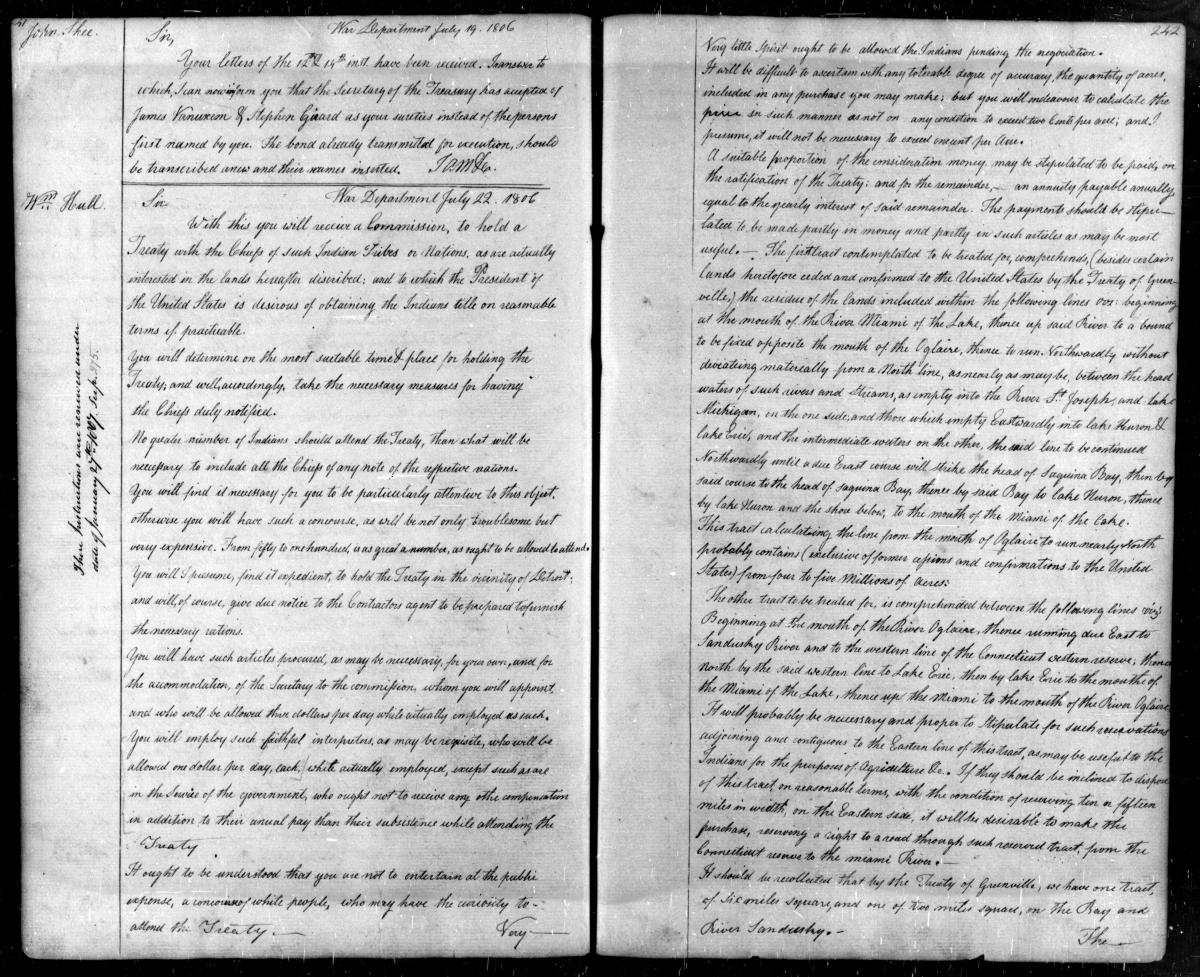 241
John Shee.
War Department July 19. 1806
Sir,
Your letters of the 12 & 14th inst. have been received. In answer to
which, I can now inform you that the Secretary of the Treasury has accepted of
James Vanuxem & Stephen Girard as your sureties instead of the persons
first named by you. The bond already transmitted for execution, should
be transcribed anew and their names inserted. I am &c.
Wm Hull.
Sir War Department July 22. 1806
With this you will receive a Commission, to hold a
Treaty with the Chiefs of such Indian Tribes or Nations, as are actually
interested in the lands hereafter discribed; and to which the President of
the United States is desirous of obtaining the Indians title on reasonable
terms if practicable.
You will determine on the most suitable time & place for holding the
Treaty; and will, accordingly, take the necessary measures for having
the Chiefs duly notified.
No greater number of Indians should attend the Treaty, than what will be
necessary to include all the Chiefs of any note of the respective nations.
You will find it necessary for you to be particularly attentive to this object,
otherwise you will have such a concourse, as will be not only troublesome but
very expensive. From fifty to one hundred, is as great a number, as ought to be allowed to attend.
You will I presume, find it expedient, to hold the Treaty in the vicinity of Detroit;
and will, of course, give due notice to the Contractors agent to be prepared to furnish
the necessary rations.
You will have such articles procured, as may be necessary, for your own, and for
the accommodation, of the Secretary to the commission, whom you will appoint,
and who will be allowed three dollars per day while actually employed as such.
You will employ such faithful interpreters, as may be requisite, who will be
allowed one dollar per day, each, while actually employed, except such as are
in the Service of the government, who ought not to receive any othe compensation
in addition to their anual pay than their subsistence while attending the
Treaty.
It ought to be understood that you are not to entertain at the public
expense, a concourse of white people, who may have the curiosity to
attend the Treaty. — Very —
These Instructions were renewed under
date of January 27th 1807. see p. 275.
242
Very little Spirit ought to be allowed the Indians pending the negociation.
It will be difficult to ascertain with any tolerable degree of accuracy, the quantity of acres,
included in any purchase you may make; but you will endeavour to calculate the
price in such manner as not on any condition to exceed two Cents per acre; and, I
presume, it will not be necessary to exceed one cent per Acre.
A suitable proportion of the consideration money may be stipulated to be paid, on
the ratification of the Treaty: and for the remainder, — an annuity payable anually
equal to the yearly interest of said remainder. The payments should be stipu-
lated to be made partly in money and partly in such articles as may be most
useful. — The first tract contemplated to be treated for, comprehends, (besides certain
lands heretofore ceded and confirmed to the United States by the Treaty of Green-
ville,) the residue of the lands included within the following lines viz: beginning
at the mouth of the River Miami of the Lake, thence up said River to a bound
to be fixed opposite the mouth of the Oglaire, thence to run Northwardly without
deviating materially from a North line, as nearly as may be, between the head
waters of such rivers and Streams, as empty into the River St. Joseph, and lake
Michigan, on the one side, and those which empty Eastwardly into lake Huron &
lake Erie, and the intermediate waters on the other, the said line to be continued
Northwardly until a due East course will strike the head of Saguina Bay, then by
said course to the head of saguina Bay, thence by said Bay to lake Huron, thence
by lake Huron and the shore below, to the mouth of the Miami of the Lake.
This tract calculating the line from the mouth of Oglaire to run nearly North
probably contains (inclusive of former cessions and confirmations to the United
States) from four to five Millions of Acres.
The other tract to be treated for, is comprehended between the following lines viz
Beginning at the mouth of the River Oglaire, thence running due East to
Sandusky River and to the western line of the Connecticut western reserve; thence
North by the said western line to Lake Erie, then by lake Erie to the mouth of
the Miami of the Lake, thence up the Miami to the mouth of the River Oglaire
It will probably be necessary and proper to Stipulate for such reservations
adjoining and contiguous, to the Eastern line of this tract, as may be useful to the
Indians for the purposes of Agriculture &c. If they should be inclined to dispose
of this tract, on reasonable terms, with the condition of reserving ten or fifteen
miles in width, on the Eastern side, it will be desirable to make the
purchase, reserving a right to a road through such reserved tract, from the
Connecticut reserve to the miami River. —
It should be recollected that by the Treaty of Greenville, we have one tract,
of six miles square, and one of two miles squar, on the Bay and
River Sandusky. — The —